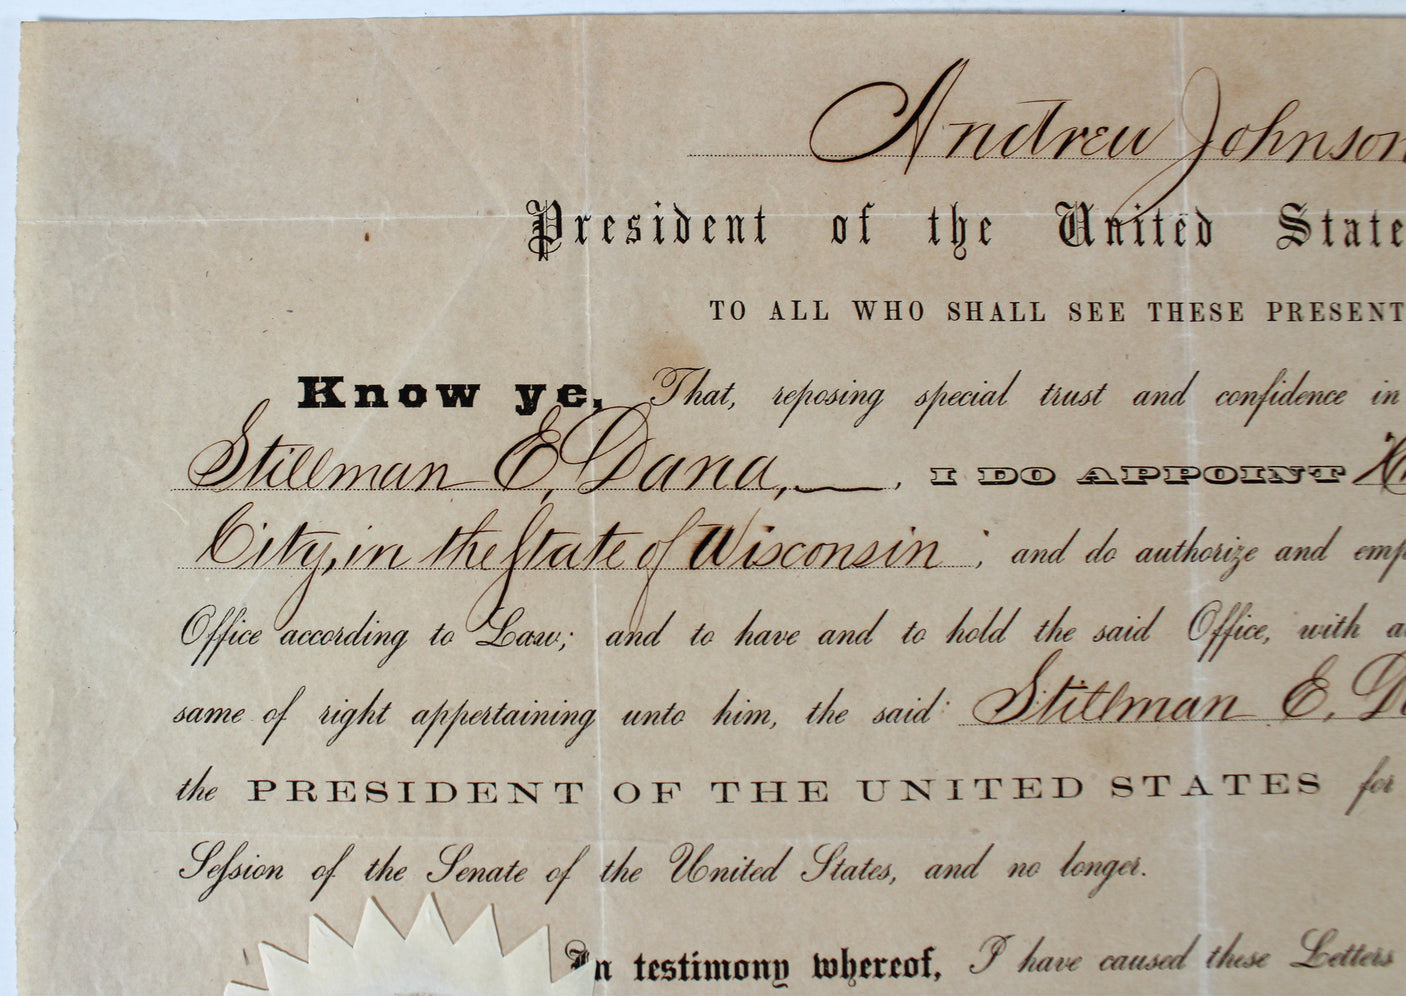 Andrew Johnson
President of the United State
TO ALL WHO SHALL SEE THESE PRESENT
Know ye, That, reposing special trust and confidence in
Stillman E. Dana, —, I DO APPOINT
City, in the State of Wisconsin ; and do authorize and emp
Office according to Law; and to have and to hold the said Office, with a
same of right appertaining unto him, the said Stillman E. D
the PRESIDENT OF THE UNITED STATES for
Seſsion of the Senate of the United States, and no longer.
In testimony whereof, I have caused these Letters